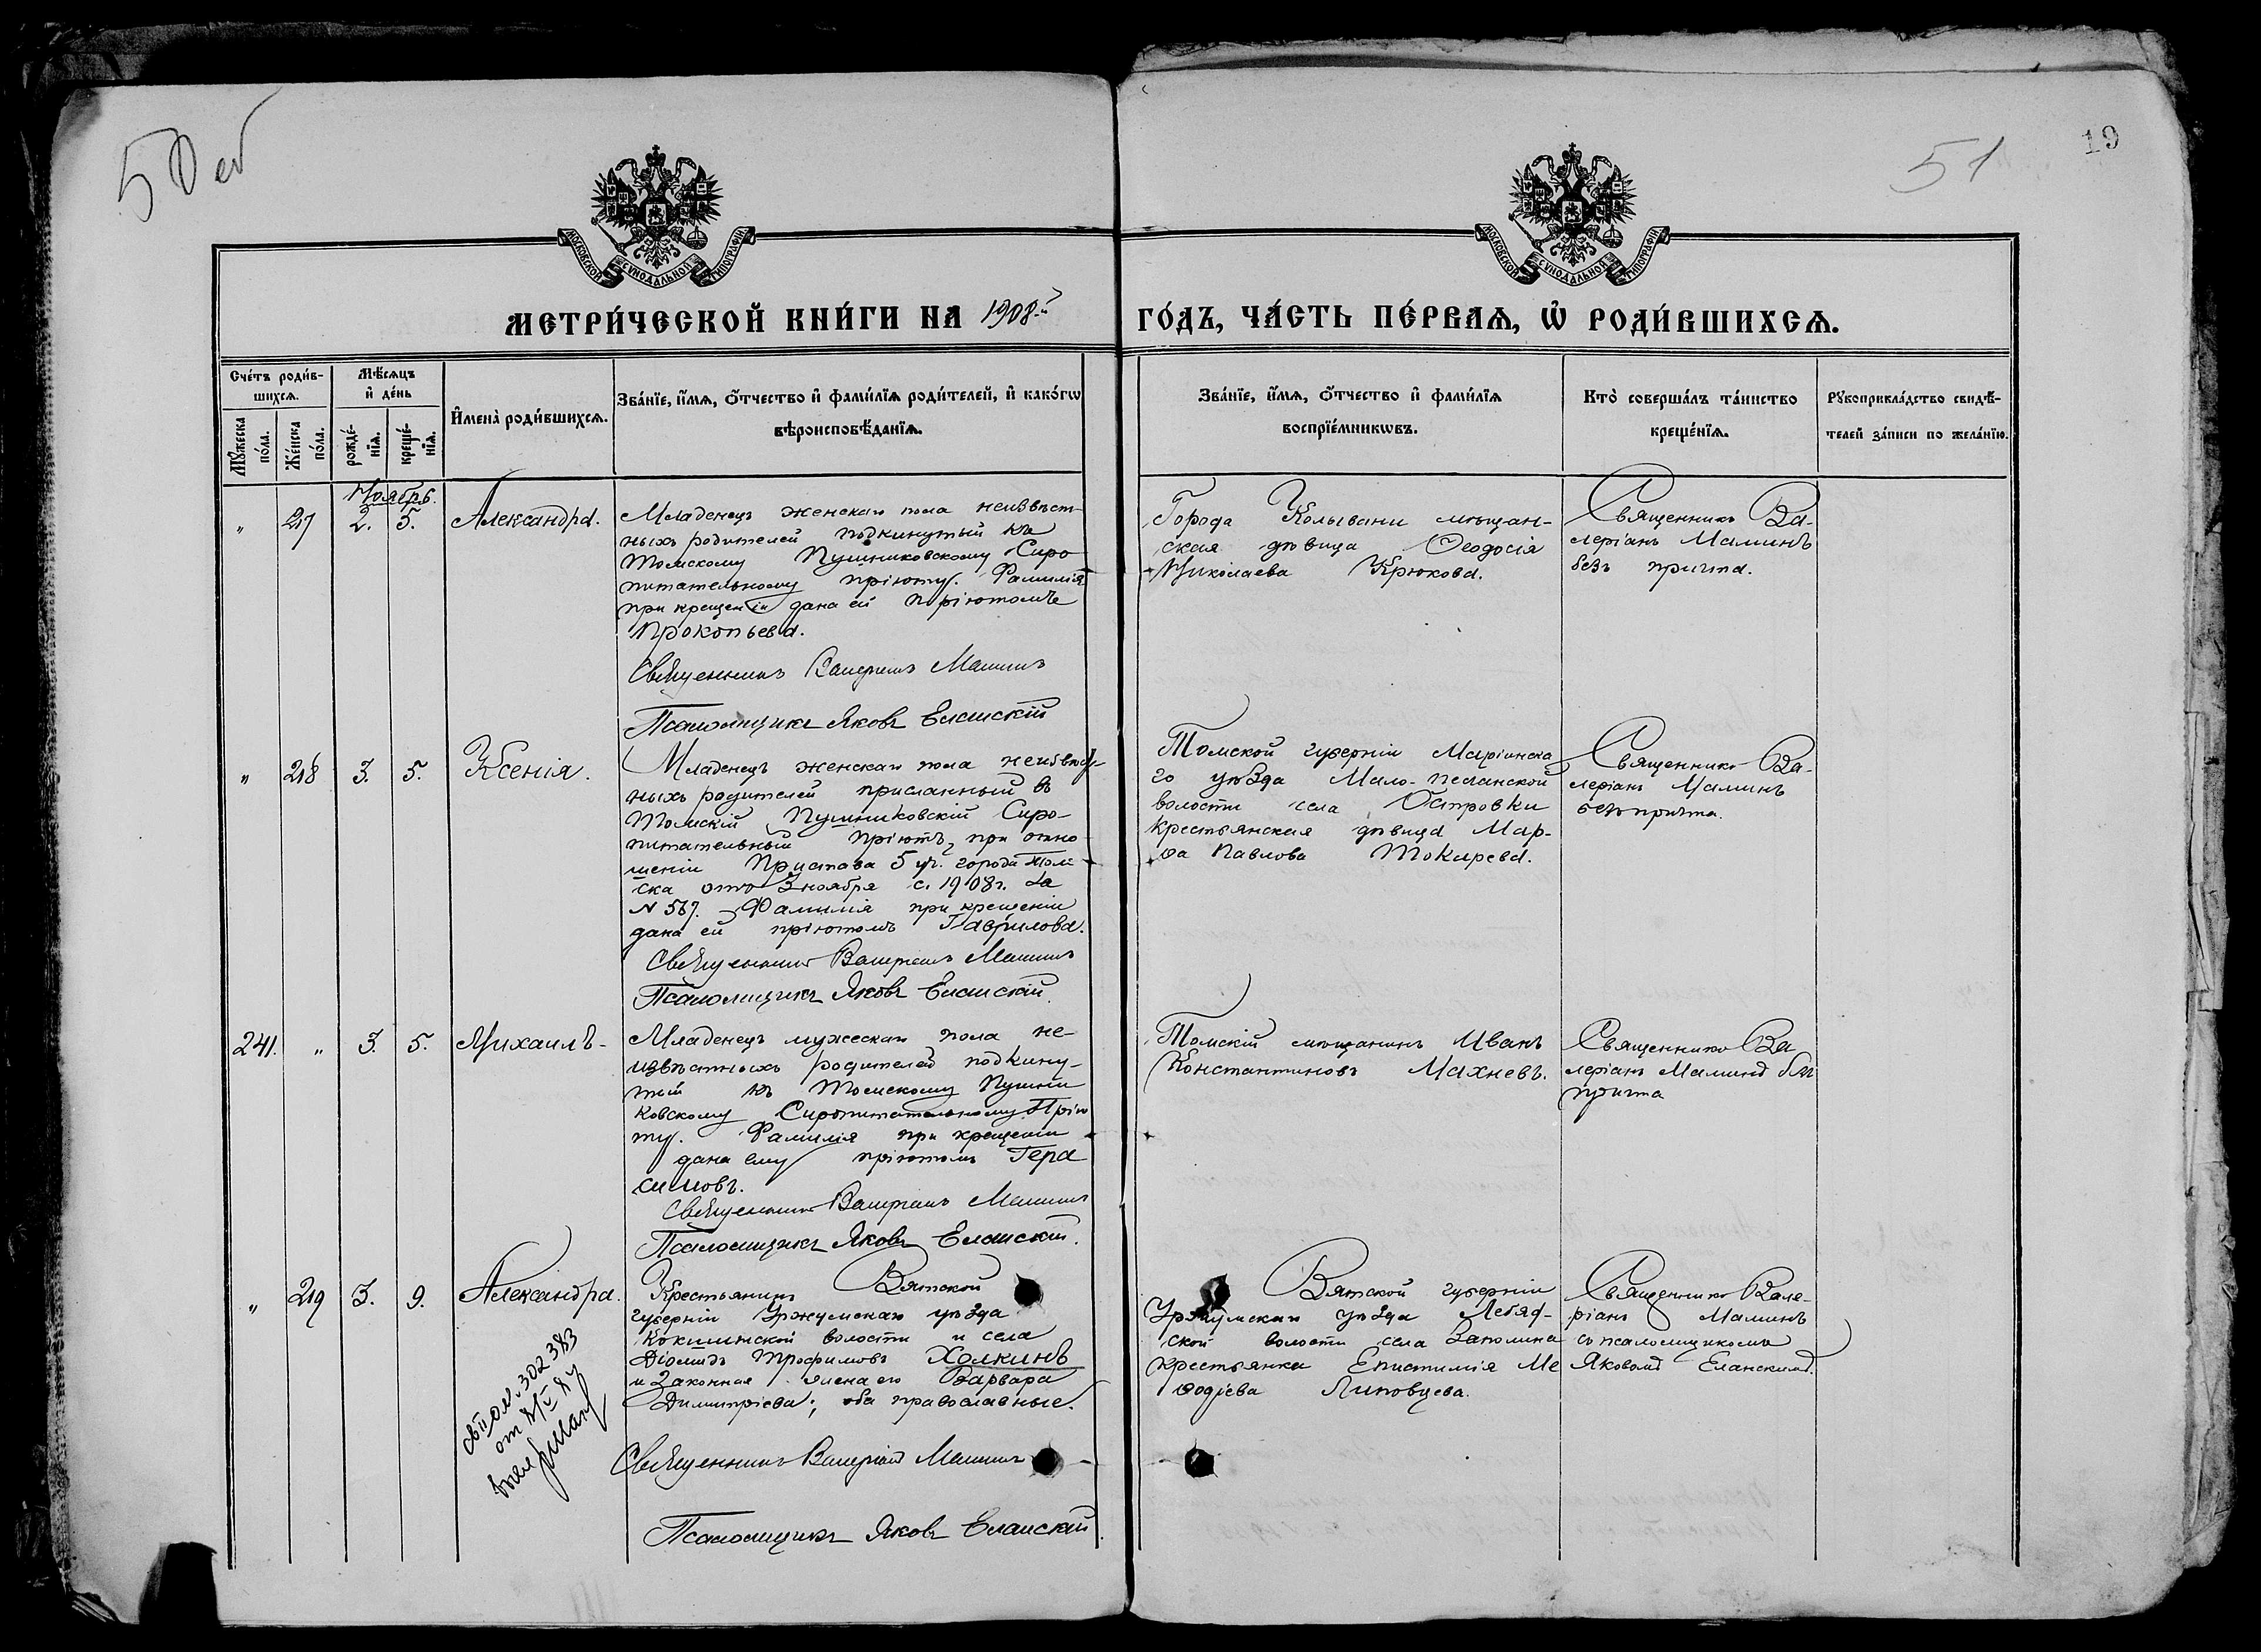 50 об
51
19
МОСКОВСКОЙ СѴНОДАЛЬНОЙ ТИПОГРАФІИ
МОСКОВСКОЙ СѴНОДАЛЬНОЙ ТИПОГРАФІИ
МЕТРИ́ЧЕСКОЙ КНИ́ГИ НА 1908.й ГО́ДЪ, ЧА́СТЬ ПЕ́РВАѦ, Ѡ҆ РОДИ́ВШИХСѦ.
Сче́тъ роди́в-
шихсѧ.
Мꙋ́жеска
по́ла.
Же́нска
по́ла.
Мѣ́сѧцъ
и҆ де́нь
рожде́-
нїѧ.
креще́-
нїѧ.
И҆мена̀ роди́вшихсѧ.
Зва́нїе, и҆́мѧ, ѻ҆́тчество и҆ фами́лїѧ роди́телей, и҆ како́гѡ
вѣроисповѣ́данїѧ.
Зва́нїе, и҆́мѧ, ѻ҆́тчество и҆ фами́лїѧ
воспрїе́мникѡвъ.
Кто̀ соверша́лъ та́инство
креще́нїѧ.
Рꙋкоприкла́дство свидѣ́-
телей за́писи по жела́нїю.
Ноябрь.
" 217 2. 5. Александра.
Младенецъ женскаго пола неизвѣст-
ныхъ родителей подкинутый къ
Томскому Пушниковскому Сиро
питательному пріюту. Фамилія
при крещеніи дана ей пріютомъ
Прокопьева.
Священникъ Валеріанъ Маминъ
Псаломщикъ Яковъ Еланскій
Города Колывани мѣщан-
ская дѣвица Ѳеодосія
Николаева Крюкова.
Священникъ Ва-
леріанъ Маминъ
безъ причта.
" 218 3. 5. Ксенія.
Младенецъ женскаго пола неизвѣст-
ныхъ родителей присланный въ
Томскій Пушниковскій Сиро-
питательный пріютъ, при отно
шеніи Пристава 5 уч. города Том
ска отъ 3 ноября с. 1908 г. за
N 567. Фамилія при крещеніи
дана ей пріютомъ Гаврилова.
Священникъ Валеріанъ Маминъ
Псаломщикъ Яковъ Еланскій.
Томской губерніи Маріинска
го уѣзда Мало-Песчанской
волости села Островки
крестьянская дѣвица Мар-
ѳа Павлова Токарева.
Священникъ Ва-
леріанъ Маминъ
безъ причта.
241. " 3. 5. Михаилъ-
Младенецъ мужескаго пола не-
извѣстныхъ родителей подкину-
тый къ Томскому Пушни
ковскому Сиропитательному Прію
ту. Фамилія при крещеніи
дана ему пріютомъ Гера
симовъ.
Священникъ Валеріанъ Маминъ
Псаломщикъ Яковъ Еланскій.
Томскій мѣщанинъ Иванъ
Константиновъ Махневъ.
Священникъ Ва
леріанъ Маминъ без
причта
" 219 3. 9. Александра.
Крестьянинъ Вятской
губерніи Уржумскаго уѣзда
Кокшинской волости и села
Діомидъ Трофимовъ Холкинъ
и законная жена его Варвара
Димитріева; оба православные.
Священникъ Валеріанъ Маминъ
Псаломщикъ Яковъ Еланскій.
Вятской губерніи
Уржумскаго уѣзда Лебяж-
ской волости села
крестьянка Епистимія Ме
ѳодіева Липовцева.
Священникъ Вале-
ріанъ Маминъ
съ псаломщикомъ
Яковомъ Еланскимъ.
302383
от